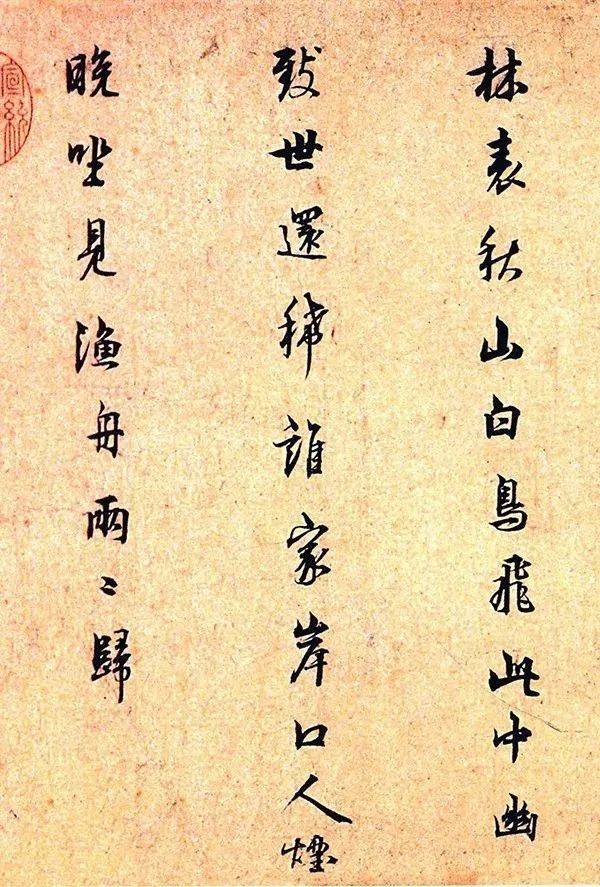 林表秋山白鳥飛此中幽
致世還稀誰家岸口人煙
晚坐見漁舟兩〻歸